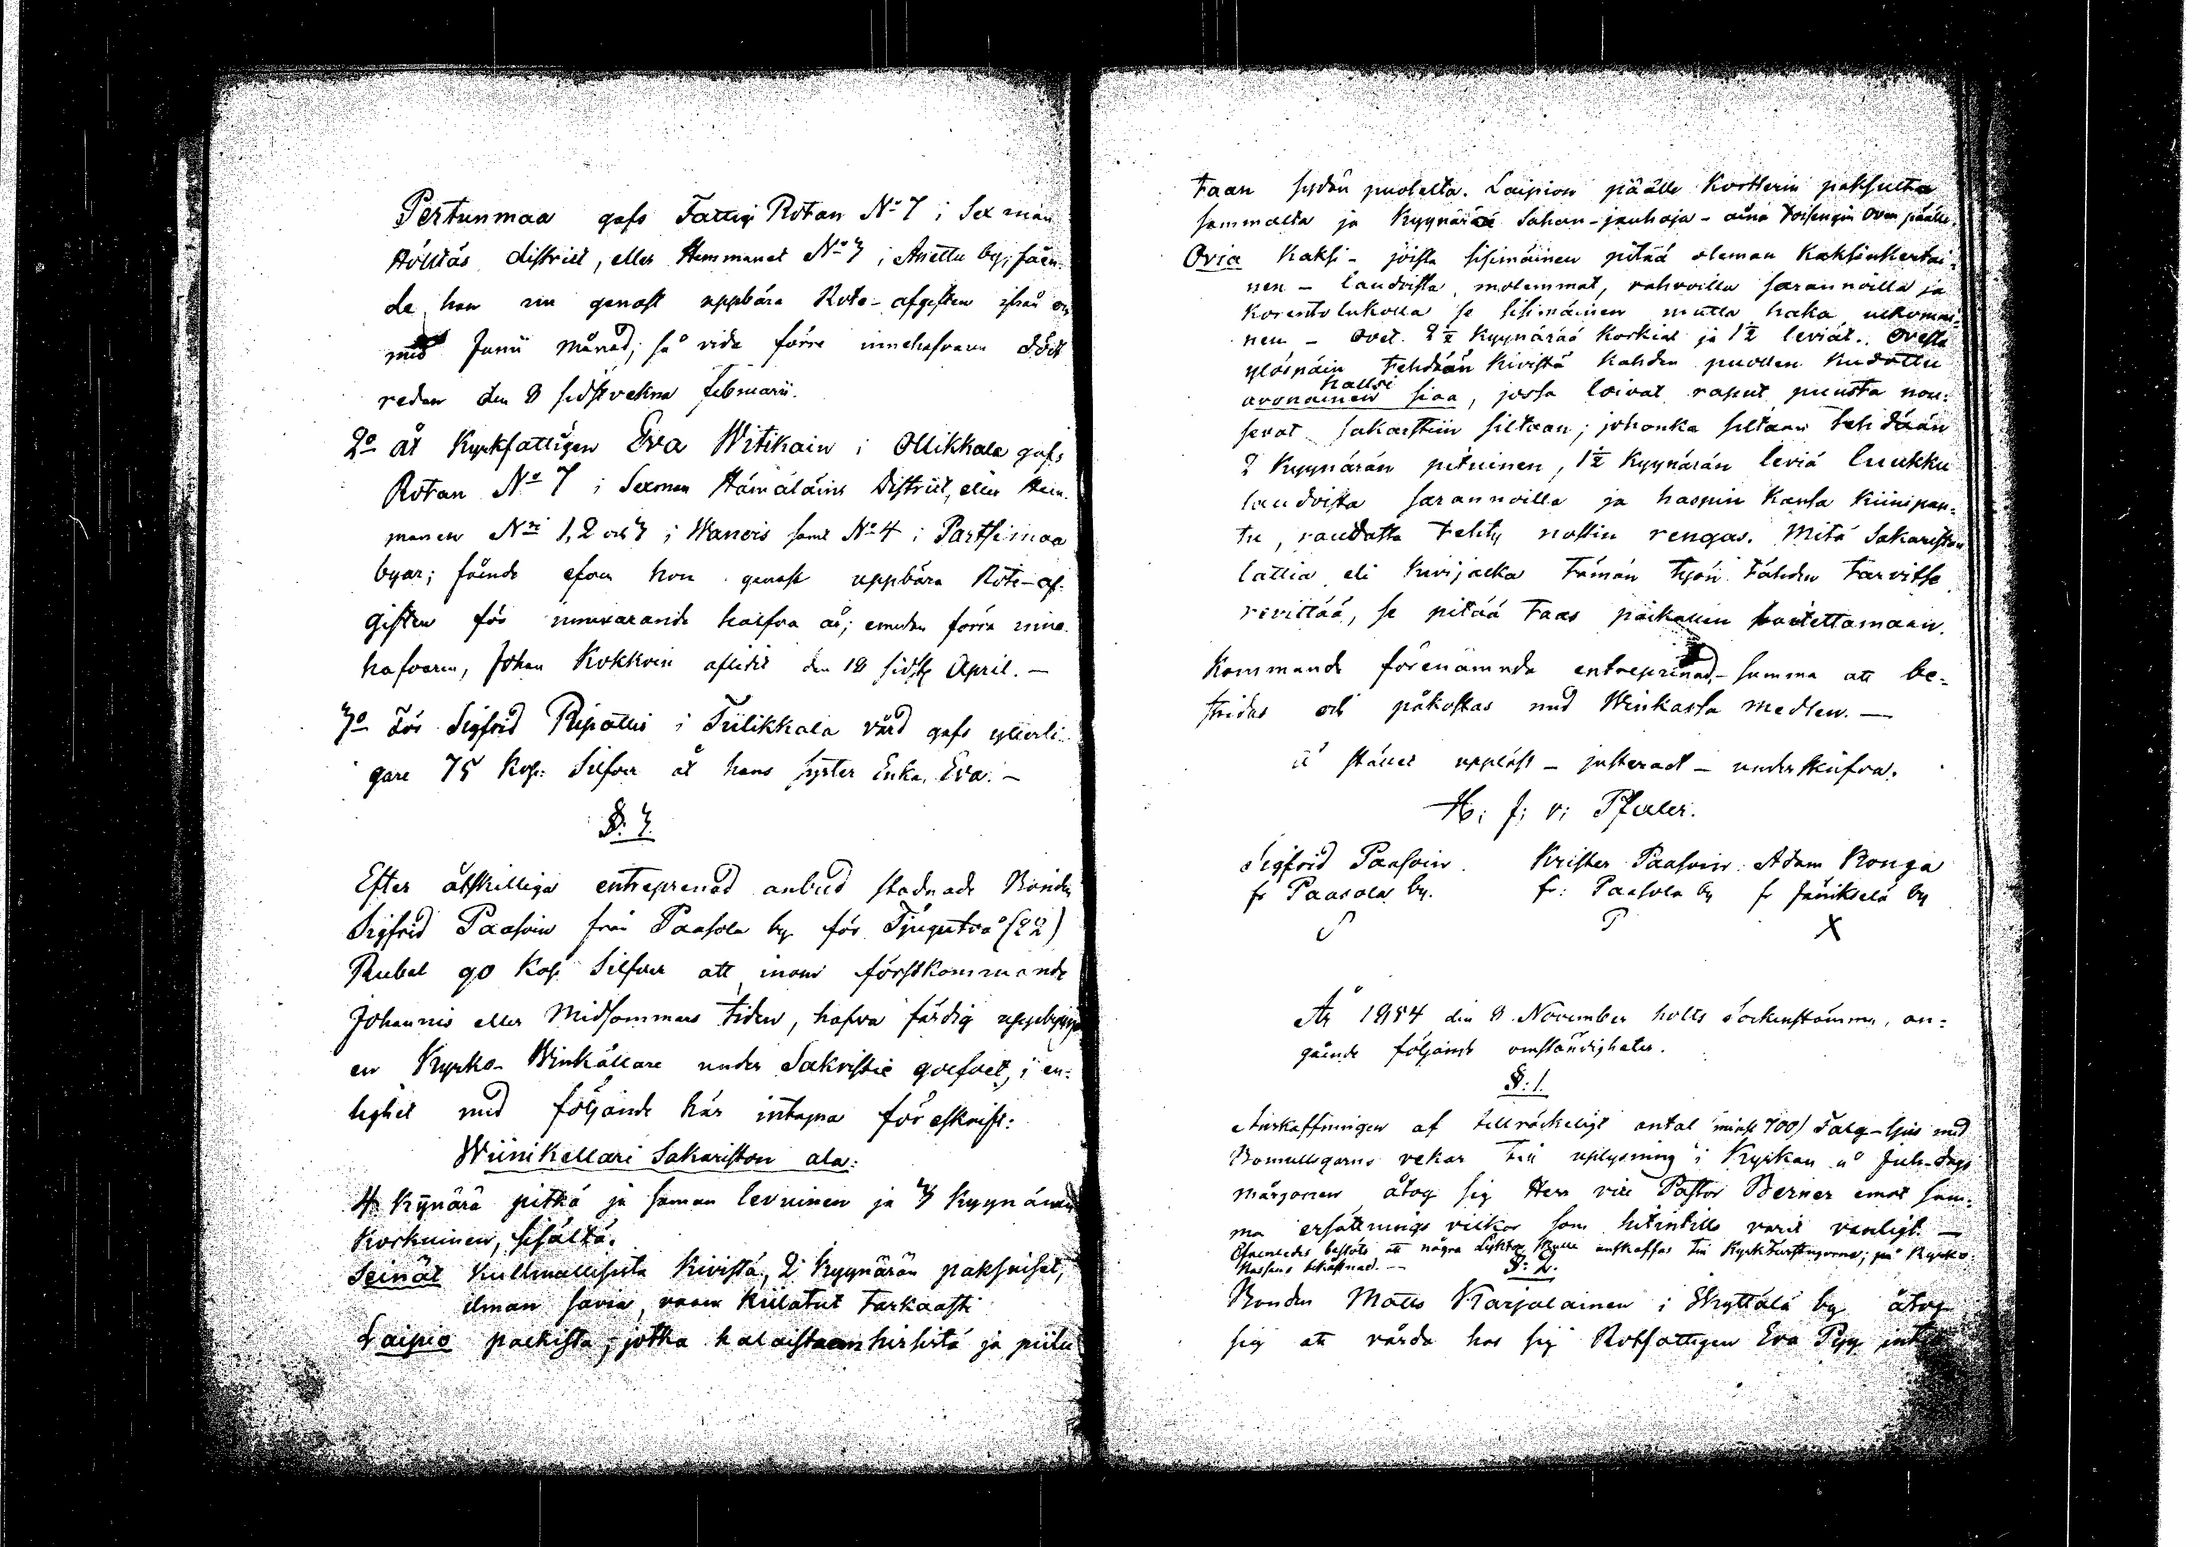 Pertunmaa gafs Fattig Rotan No 7 i Sexman
Hölttäs district, eller Hemmanet No 3 i Anettu by; fåen-
de han nu genast uppbära Rote-afgiften ifrån
med Junii Månad, så vida förre innehafvaren död
redan den 8 sidstvekne Februarii.
2o åt Kyrkfattigen Eva Witikain i Ollikkala gafs
Rotan No 7 i Sexman Hämäläins District, eller Hem-
manen Nri 1, 2 och 3 i Wanois samt No 4 i Parttimaa
byar; fående äfven hon genast uppbära Rote-af-
giften för innevarande halfva år; emedan förra inne-
hafvaren, Johan Kokkoin aflidit den 18 sidstl April. —
3o För Sigfrid Ripattis i Tiilikkala vård gafs ytterli-
gare 75 Kop: Silfver åt hans syster Enka, Eva. —
§. 3.
Efter åtskilliga entreprenad anbud stadnade Bonden
Sigfrid Paasoin från Paasola by för Tjugutvå (22)
Rubel 90 Kop Silfver att inom förstkommande
Johannis eller Midsommars tiden, hafva färdig uppbyggd
en Kyrko-Winkällare under Sakristie golfvet, i en-
lighet med följande här intagna föreskrift:
Wiinikellari Sakariston ala:
4 Kynärä pitkä ja saman levuinen ja 3 Kyynärän
Korkuinen, sisältä.
Seinät kullmallisista Kivistä, 2 kyynärän paksuiset,
ilman savia, vaan kiilatut tarkaasti
Laipio palkista, jotka halaistaan hirsistä ja piilu
taan sydän puolelta. Laipion päälle kortterin paksulta
sammalta ja Kyynärää Sahan-jauhoja - aina toisengin oven päälle.
Ovia Kaksi - joista sisimäinen pitää oleman Kaksinkertai-
nen - laudoista molemmat, vahvoilla sarannoilla ja
Korento lukolla se sisimäinen mutta haka ulkomai-
nen - ovet 2½ Kyynärää Korkiat ja 1½ leviät. Ovesta
ylöspäin tehdään Kivistä kahden puolen kudottu
halssi
avonainen siaa, jossa loivat raput puusta nou-
sevat sakarstiin siltaan; johonka siltaan tehdään
2 Kyynärän pituinen, 1½ Kyynärän leviä luukku
laudoista sarannoilla ja haspin kansa kiinipan-
tu, raudatta tehty nostin rengas. Mitä Sakariston
lattia eli Kivijalka tämän työn tähden tarvitse
revittää, se pitää taas paikallen
Kommande förenämnde entreprenad-summa att be-
stridas och påkostas med Winkassa medlen. —
å stället uppläst - justerat - underskrifva.
H: f: v: Pfaler.
Sigfrid Paasoin Krister Paasoin Adam Ronga
fr Paasola by. fr: Paasola by fr Jänikselä by
X
År 1854 den 8 November holts Sockenstämma, an-
gående följande omständigheter.
§: 1.
Anskaffningen af tillräckeligt antal (minst 700) Talg-ljus med
Bomullsgarns vekar till uplysning i Kyrkan å Jul-dags
Morgonen åtog sig Herr vice Pastor Berner emot sam-
ma ersättnings vilkor som hitintills varit vanligt. —
Äfvenledes beslöts att några Lyktor skulle anskaffas till Kyrk på Kyrko-
Kassans bekåstnad. —
§: 2.
Bonden Matts Karjalainen i Kyttälä by åtog
sig att vårda hos sig Rotfattigen Eva Pyy